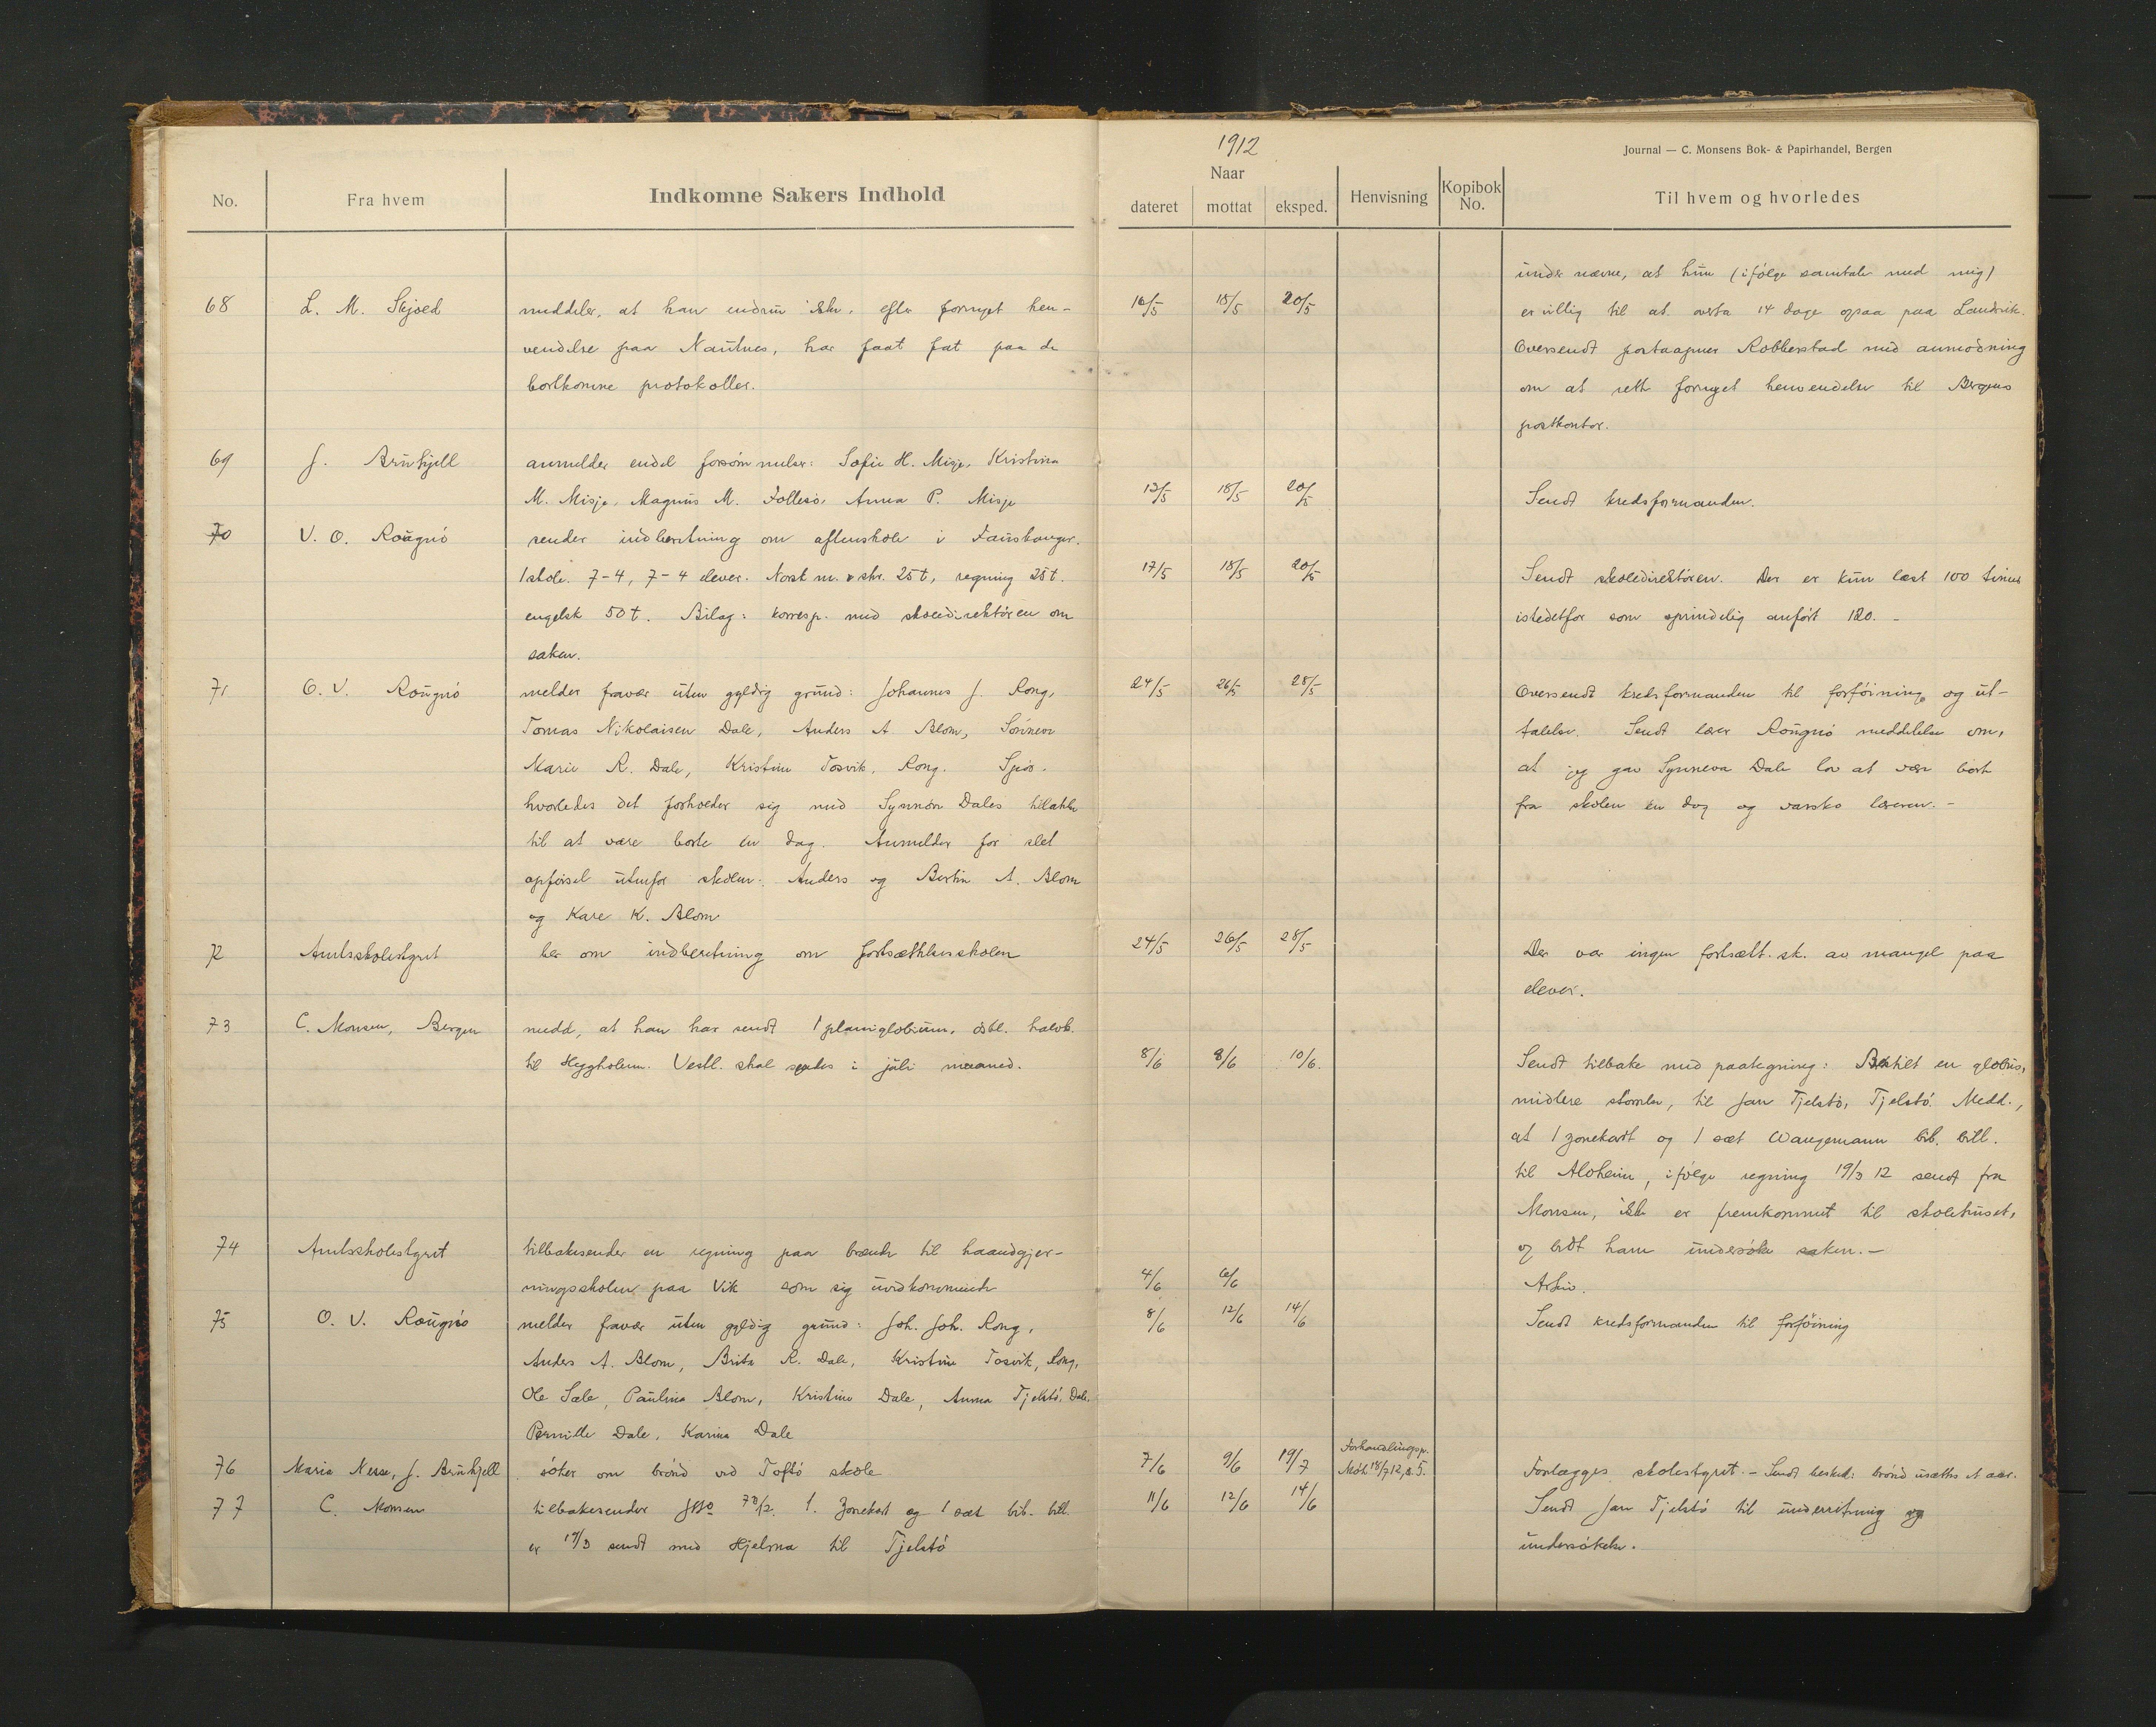 1912
Journal — C. Monsens Bok- & Papirhandel, Bergen
No.
Fra hvem
Indkomne Sakers Indhold
Naar
dateret
mottat
eksped.
Henvisning
Kopibok No.
Til hvem og hvorledes
68
L. M. Skjold
meddeler, at han endnu ikke, efter fornyet hen-
vendelse paa Nautnes, har faat fat paa de
bortkomne protokoller.
16/5 18/5 20/5
undernævne, at hun (ifölge samtale med mig)
er villig til at overta 14 dage ogsaa paa Landvik.
Oversendt postaapner Robberstad med anmodning
om at rette fornyet henvendelse til Bergens
postkontor.
69
J. Brünkjell
anmelder endel forsömmelser: Sofie H. Misje, Kristina
M. Misje, Magnus M. Follesö, Anna P. Misje
13/5 18/5 20/5
Sendt kredsformanden.
70
V. O. Rougnö
sender indberetning om aftenskole i Fauskanger.
1 skole. 7-4, 7-4 elever. Norsk m. & skr. 25 t, regning 25 t.
engelsk 50 t. Bilag: korresp. med skoledirektören om
saken.
17/5 18/5 20/5
Sendt skoledirektören. Der er kun læst 100 timer
istedetfor som oprindelig anført 120. -
71
O. V. Rougnö
melder fravær uten gyldig grund: Johannes J. Rong,
Tomas Nikolaisen Dale, Anders A Blom, Sönneva
Marie R. Dale, Kristine Tosvik, Rong. Spör.
hvorledes det forholder sig med Synnöve Dales tillatelse
til at være borte en dag. Anmelder for slet
opförsel utenfor skolen: Anders og Bertin A. Blom
og Kare K. Blom
24/5 26/5 28/5
Oversendt kredsformanden til forföining og ut-
talelse. Sendt lærer Rougnö meddelelse om,
at jeg gav Synneva Dale lov at være bort
fra skolen en dag og varsko læreren. -
72
Amtsskolestyret
ber om indberetning om fortsættelsesskolen
24/5 26/5 28/5
Der var ingen fortsætt. sk. av mangel paa
elever.
73
C. Monsen, Bergen
medd. at han har sendt 1 planiglobium, östl. halvk.
til Heggholmen. Vestl. skal sendes i juli maaned.
8/6 8/6 10/6.
Sendt tilbake med paategning: Bestilt en globus,
midlere störrelse, til Jan Tjelstö, Tjelstö. Medd.,
at 1 zonekart og 1 sæt Wangemann bib. bill.
til Alvheim, ifölge regning 19/3 12 sendt fra
Monsen, ikke er fremkommet til skolehuset,
og bedt ham undersöke saken. -
74
Amtsskolestyret
tilbakesender en regning paa brænde til haandgjer-
ningsskolen paa Vik som sig uvedkommende
4/6 6/6
Arkiv.
75
O. V. Rougnö
melder fravær uten gyldig grund: Joh. Joh. Rong,
Anders A. Blom, Brita R. Dale, Kristine Tosvik, Rong,
Ole Sæle, Paulina Blom, Kristine Dale, Anna Tjelstö, Dale.
Pernille Dale, Karina Dale
8/6 12/6 14/6
Sendt kredsformanden til forföining
76
Maria Nesse, J. Brünkjell
söker om brönd ved Toftö skole
7/6 9/6 19/7
Forhandlingsp.
Möte 18/7 12, s. 5.
Forlægges skolestyret. - Sendt besked: brönd utsættes et aar.
77
C. Monsen
tilbakesender 73/12. 1. zonekart og 1 sæt bib. bill.
er 19/3 sendt med Hjelma til Tjelstö
11/6 12/6 14/6
Sendt Jan Tjelstö til underretning og
undersökelse.